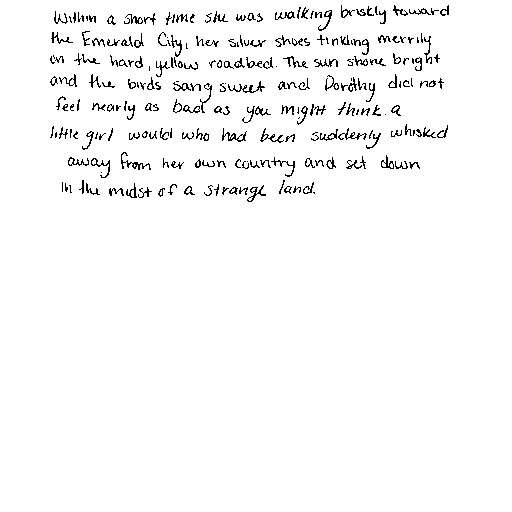 Within a short time she was walking briskly toward
the Emerald City, her silver shoes tinkling merrily
on the hard, yellow roadbed. The sun shone bright
and the birds sang sweet and Dorothy did not
feel nearly as bad as you might think a
little girl would who had been suddenly whisked
away from her own country and set down
in the midst of a strange land.